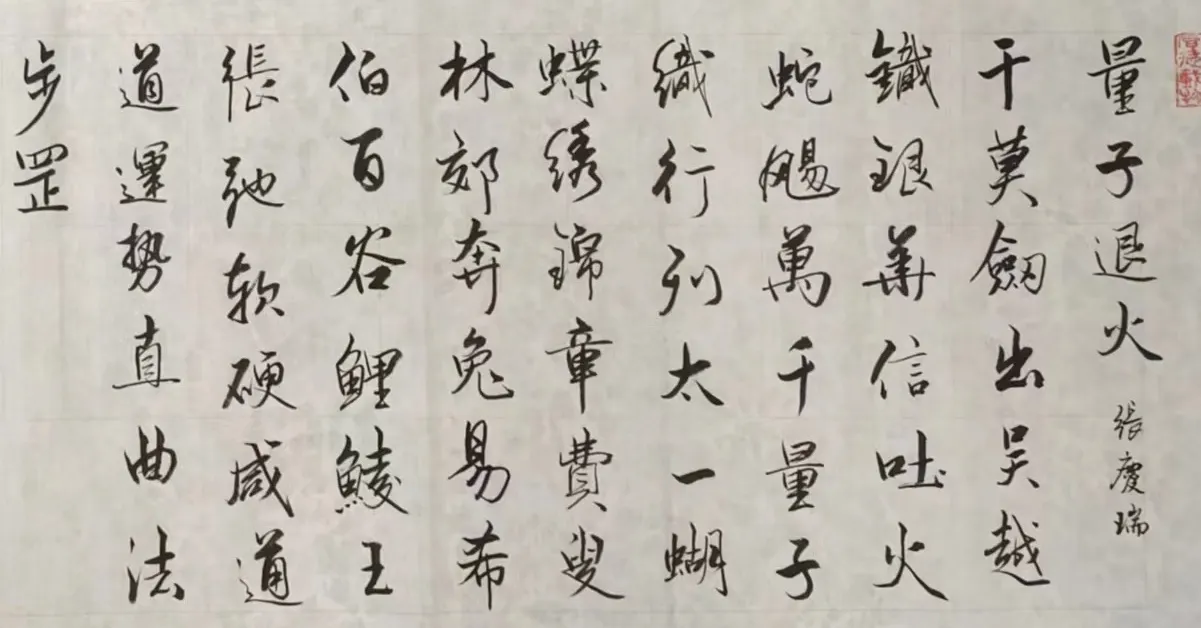 量子退火 張慶瑞
干莫劍出吳越
鐵銀華信吐火
蛇颺萬千量子
織行列太一蝴
蝶綉錦章費叟
林郊奔兔易希
伯百谷鯉鯪王
張弛软硬咸通
道運势直曲法
步罡